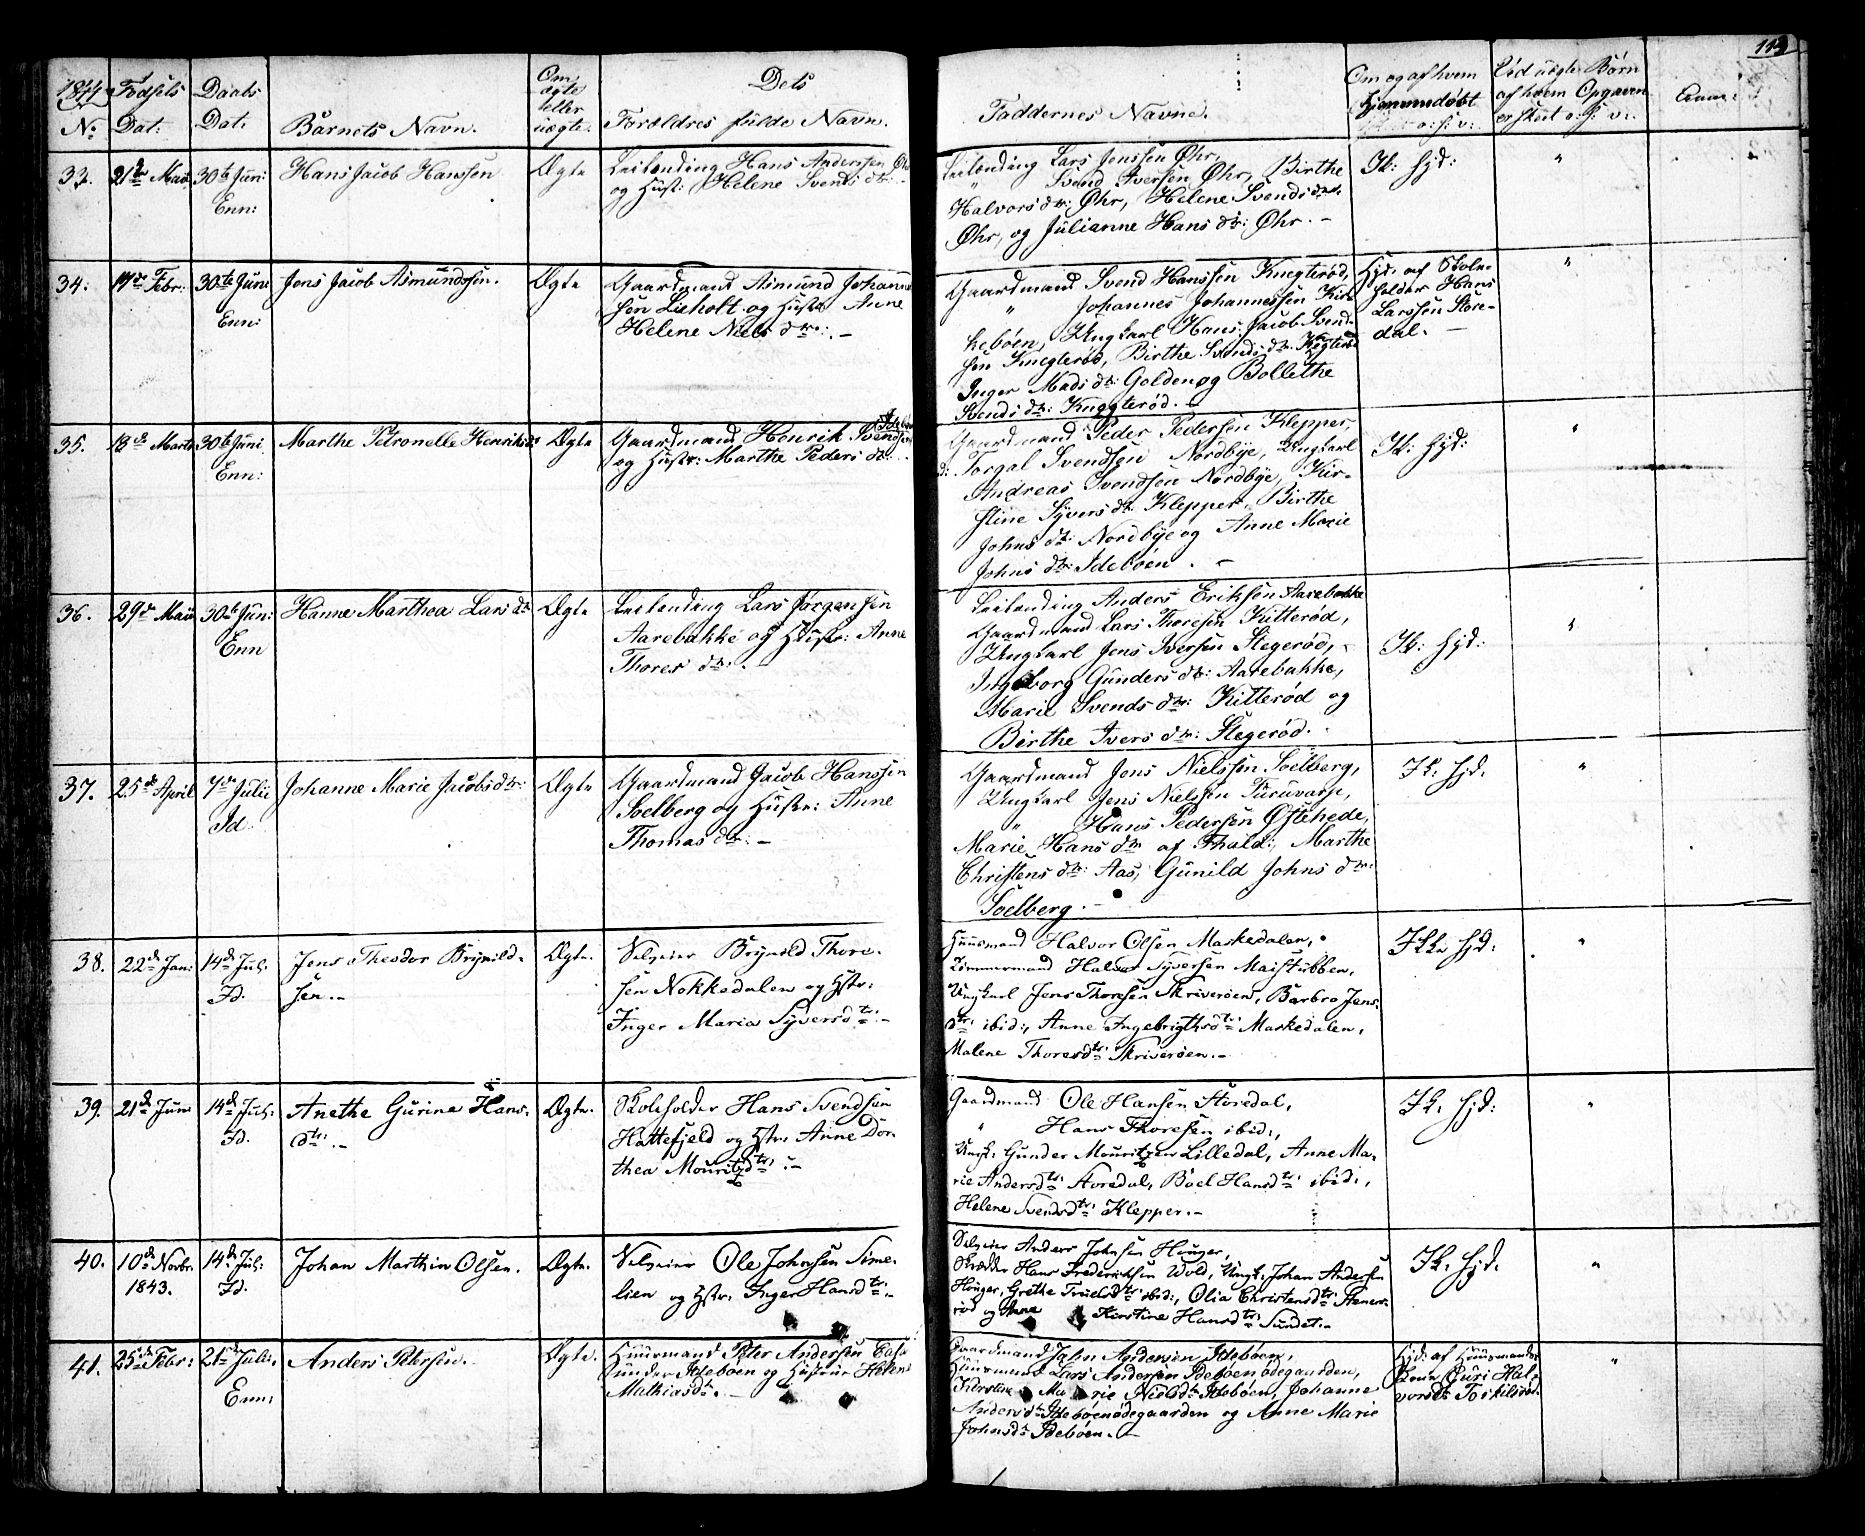 1844
No
Fødsels
Dat:
Daabs
Dat:
Barnets Navn.
Om
ægte
eller
uægte.
Dets
Foreldres fulde Navn.
Faddernes Navne.
Om og af hvem
hjemmedøbt
o: s: v:
Ved uægte Børn
af hvem Opgaven
er skeet o: s: v:
113
33.
21de Mai
30te Juni
Enn:
Hans Jacob Hanssen
Ægte
Leilending Hans Anderssen Øhr
og Hust: Helene Svends dtr: -
Leilending Lars Jenssen Øhr,
" Svend Iversen Øhr, Birthe
Halvors dtr: Øhr, Helene Svends dtr:
Øhr, og Julianne Hans dtr: Øhr. -
Ik: hjd:
"
34.
19de Febr:
30te Juni
Enn:
Jens Jacob Asmundssen.
Ægte
Gaardmand Asmund Johannes
sen Lieholt og Hustr: Anne
Helene Niels dtr: -
Gaardmand Svend Hanssen Knegterød,
" Johannes Johannessen Kir
kebøen, Ungkarl Hans Jacob Svend
sen Knegterød, Birthe Svends dtr: Knegterød
Inger Mads dtr: Golden og Bollethe
Svends dtr: Knegterød. -
Hjd: af Skole-
holder Hans
Larssen Store-
dal. -
"
35.
13de Marts
30te Juni
Enn:
Marthe Petronelle Henriksdtr
Ægte
Gaardmand Henrik Svendsen
Idebøen
og Hustr: Marthe Peders dtr: .
Gaardmand Peder Pedersen Klepper,
d: Torgal Svendsen Nordbye, Ungkarl
Andreas Svendsen Nordbye, Kir-
stine Syvers dtr: Klepper, Birthe
Johns dtr: Nordbye og Anne Marie
Johns dtr: Idebøen . -
Ik: hjd:
"
36.
29de Mai
30te Jun:
Enn
Hanne Marthea Lars dtr
Ægte
Leilending Lars Jørgensen
Aarebakke og Hustr: Anne
Thores dtr: .
Leilending Anders Eriksen Aarebakke
Gaardmand Lars Thoresen Kitterød,
Ungkarl Jens Iversen Stegerød,
Ingeborg Gunders dtr: Aarebakke,
Marie Svends dtr: Kitterød og
Birthe Ivers dtr: Stegerød. .
Ik: hjd:
"
37.
25de April
7de Julii
Id.
Johanne Marie Jacobs dtr:
Ægte
Gaardmand Jacob Hanssen
Soelberg og Hustr: Anne
Thomas dtr: -
Gaardmand Jens Nielssen Soelberg,
Ungkarl Jens Nielssen Furuvarp,
" Hans Pedersen Østehede,
Marie Hans dtr af Fhald:, Marthe
Christens dtr: Aas, Gunild Johns dtr:
Soelberg. -
Ik: hjd.
"
38.
22de Jan:
14de Jul:
Id.
Jens Theodor Brynild-
sen. -
Ægte.
Selveier Brynild Thore-
sen Nokkedalen og Hstr:
Inger Maria Syversdtr: -
Huusmand Halvor Olsen Maskedalen,
Tømmermand Halvor Syversen Maistubben,
Ungkarl Jens Thoresen Skriverøen, Barbro Jens-
dtr: ibid:, Anne Ingebrigthsdtr: Maskedalen,
Malene Thoresdtr: Skriverøen. -
Ikke hjd:
"
39.
21de Juni
14de Jul:
Id.
Anethe Gurine Hans-
dtr: -
Ægte.
Skoleholder Hans Svendsen
Hattefjeld og Hstr: Anne Dor
thea Mouritzdtr: -
Gaardmand Ole Hansen Storedal,
" Hans Thoresen ibid:,
Ungk: Gunder Mouritzen Lilledal, Anne Ma-
rie Andersdtr: Storedal, Boel Hansdtr: ibid:,
Helene Svendsdtr: Klepper. -
Ik. hjd:
"
40.
10de Novbr.
1843.
14de Jul:
Id.
Johan Marthin Olsen.
Ægte.
Selveier Ole Johnsen Sime-
lien og Hstr: Inger Hansdtr: -
Selveier Anders Johnsen Houger,
Skrædder Hans Frederiksen Wold, Ungk: Johan Andersen
Houger, Grethe Truelsdtr: ibid:, Olia Christensdtr: Steners-
rød og Anne Kirstine Hansdtr: Sundet. -
Ik. hjd.
"
41.
25de Febr:
21de Julii
Enn:
Anders Petersen.
Ægte.
Huusmand Peter Andersen
under Idebøen og Hustrue Helene
Mathiasdtr. -
Gaardmand John Andersen Idebøen,
Huusmand Lars Andersen Idebøenødegaarden,
Kierstine Marie Nielsdtr Idebøen, Johanne
Andersdtr Idebøenødegaarden og Anne Marie
Johnsdtr Idebøen. -
Hjd: af Huusmands
Kone Guri Hal-
vorsdtr Torkilsrød.
"